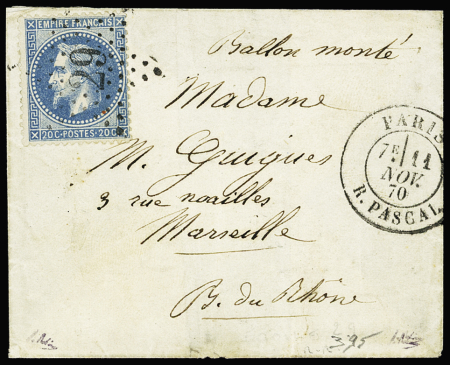 EMPIRE FRANCAIS
29
20C·POSTES·20C
Ballon monté
Madame
M. Guigues
3 rue noailles
Marseille
B. du Rhône
PARIS
7E 11
NOV.
70
R. PASCAL
395